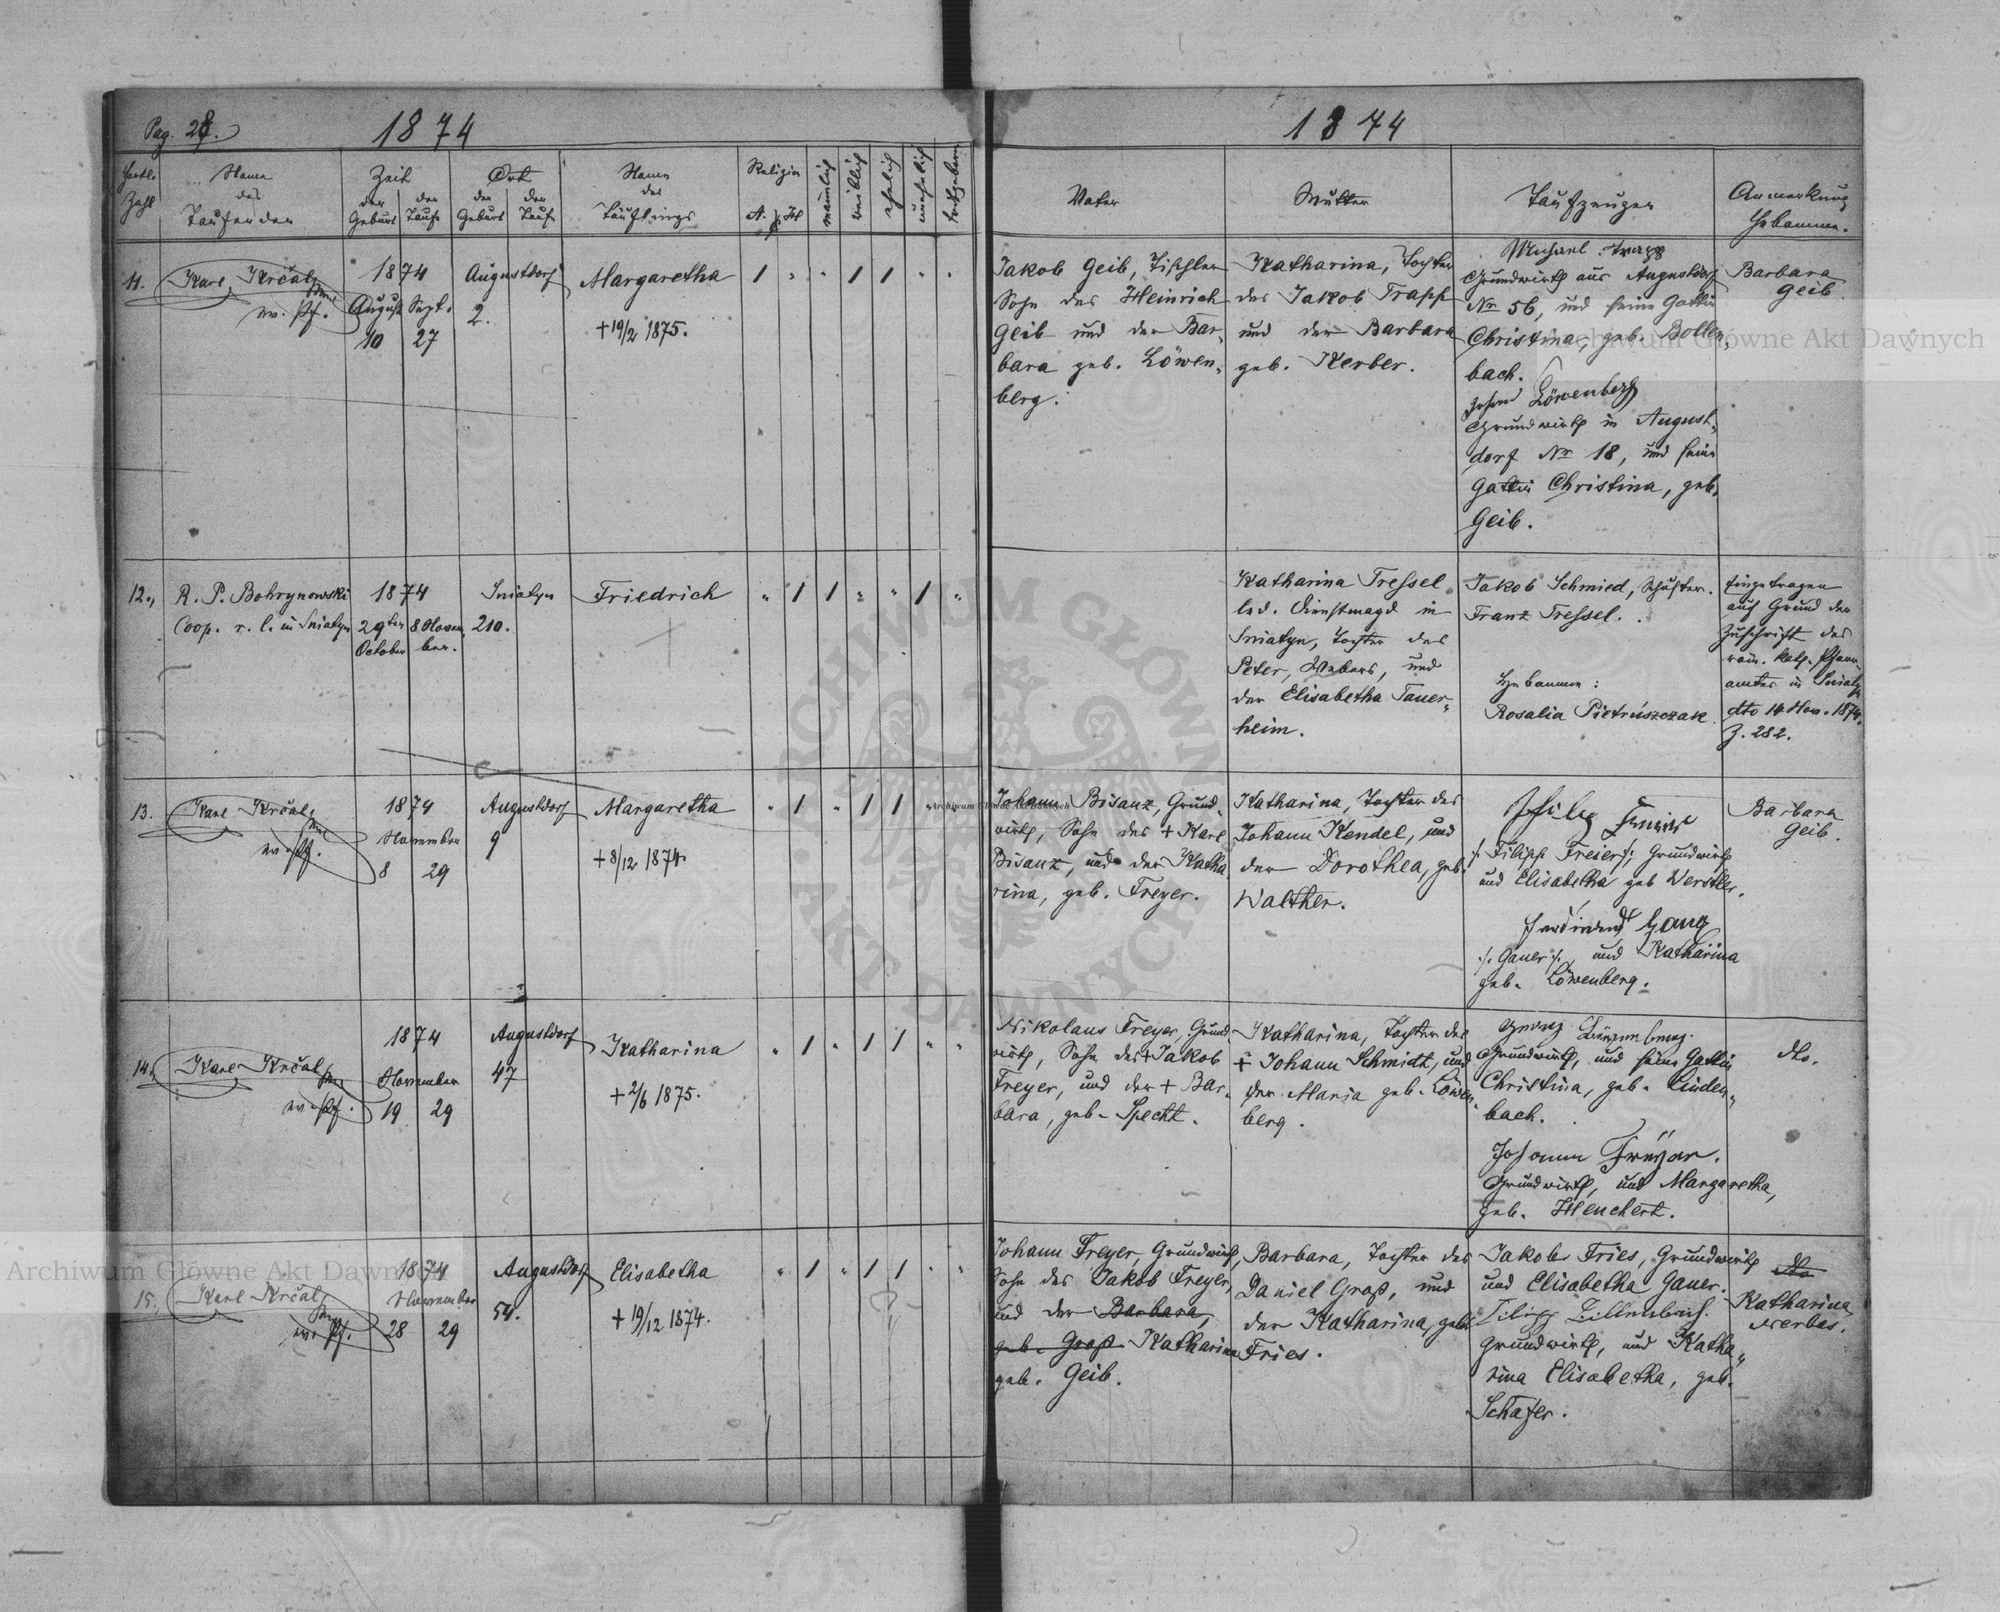 Pag. 28.
1874
1874
Zahl
Name
des
Taufenden
Zeit
der Geburt
der Taufe
Ort
der Geburt
der Taufe
Name
des
Täuflings
Religion
A. H
männlich
weiblich
ehelich
unehelich
todtgeboren
Vater
Mutter
Taufzeugen
Anmerkung
Hebamme.
11.
Karl Krčal
ev. Pf.
1874
August Sept.
10 27
Augustdorf
2.
Margaretha
+ 19/2 1875.
Jakob Geib, Tischler
Sohn des Heinrich
Geib und der Bar-
bara geb. Löwen-
berg.
Katharina, Tochter
des Jakob Trapp
und der Barbara
geb. Kerber.
Michael Trapp
Grundwirth aus Augustdorf
Nr 56, und seine Gattin
Christina, geb. Bollen-
bach.
Johann Löwenberg
Grundwirth in August-
dorf Nr 18, und seine
Gattin Christina, geb.
Geib.
Barbara
Geib.
12.
R. P. Bohrynowski
Coop. r. l. in Sniatyn
1874
29ten 8 Novem-
October ber.
Sniatyn
210.
Friedrich
Katharina Tressel
led. Dienstmagd in
Sniatyn, Tochter des
Peter, Webers, und
der Elisabetha Tauer-
heim.
Jakob Schmied, Schuster.
Franz Tressel.
Hebamme:
Rosalia Pietruszczak.
Eingetragen
auf Grund der
Zuschrift des
röm. kath. Pfarr-
amtes in Sniatyn
dto 14 Nov. 1874.
Z. 282.
13.
Karl Krčal
ev. Pf.
1874
November
8 29
Augustdorf
9
Margaretha
+ 8/12 1874.
Johann Bisanz, Grund-
wirth, Sohn des + Karl
Bisanz, und der Katha-
rina, geb. Freyer.
Katharina, Tochter des
Johann Kendel, und
der Dorothea, geb.
Walther.
Filipp Freier
/: Filipp Freier :/ Grundwirth
und Elisabetha geb Werstler.
Ferdinand Gauer
/: Gauer :/ und Katharina
geb. Löwenberg.
Barbara
Geib.
14.
Karl Krčal
ev. Pf.
1874
November
19 29
Augustdorf
47
Katharina
+ 2/6 1875.
Nikolaus Freyer, Grund-
wirth, Sohn des + Jakob
Freyer, und der + Bar-
bara, geb. Specht.
Katharina, Tochter des
+ Johann Schmidt, und
der Maria geb. Löwen-
berg.
Georg
Grundwirth, und seine Gattin
Christina, geb. Linden-
bach.
Johann Freyer.
Grundwirth, und Margaretha,
geb. Henchert.
dto.
15.
Karl Krčal
ev. Pf.
1874
November
28 29
Augustdorf
54.
Elisabetha
+ 19/12 1874.
Johann Freyer, Grundwirth,
Sohn des Jakob Freyer,
und der Barbara,
geb. Groß Katharina
geb. Geib.
Barbara, Tochter des
Daniel Groß, und
der Katharina, geb.
Fries.
Jakob Fries, Grundwirth
und Elisabetha Gauer.
Filipp
Grundwirth, und Katha-
rina Elisabetha, geb.
Schäfer.
dto
Katharina
Nerbas.
Archiwum Główne Akt Dawnych
Archiwum Główne Akt Dawnych
Archiwum Główne Akt Dawnych
ARCHIWUM GŁÓWNE AKT DAWNYCH